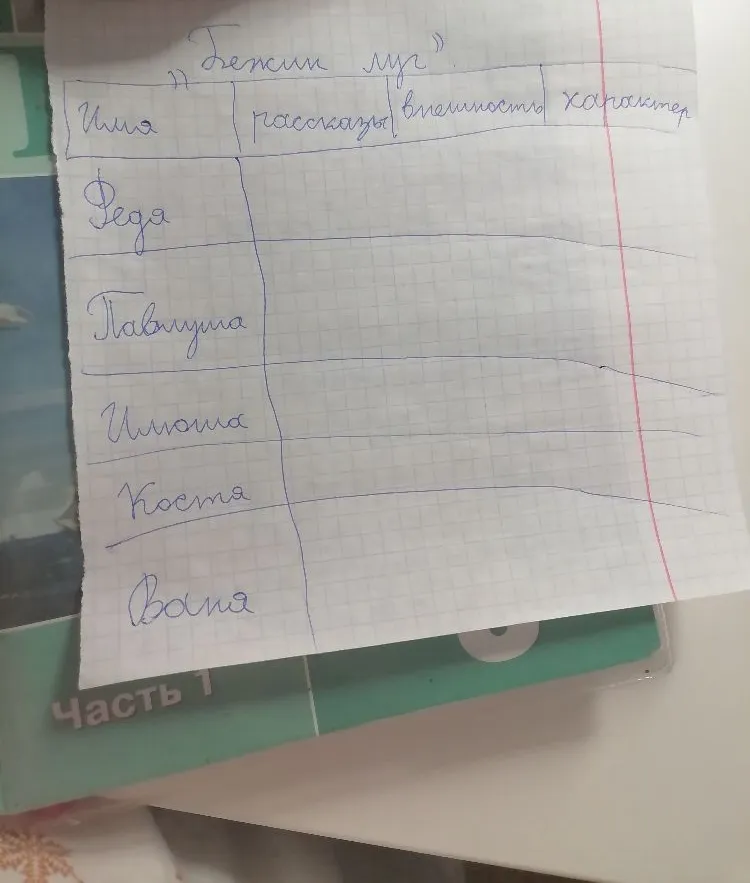 "Бежин луг"
Имя рассказы внешность характер
Федя
Павлуша
Илюша
Костя
Ваня
Часть 1